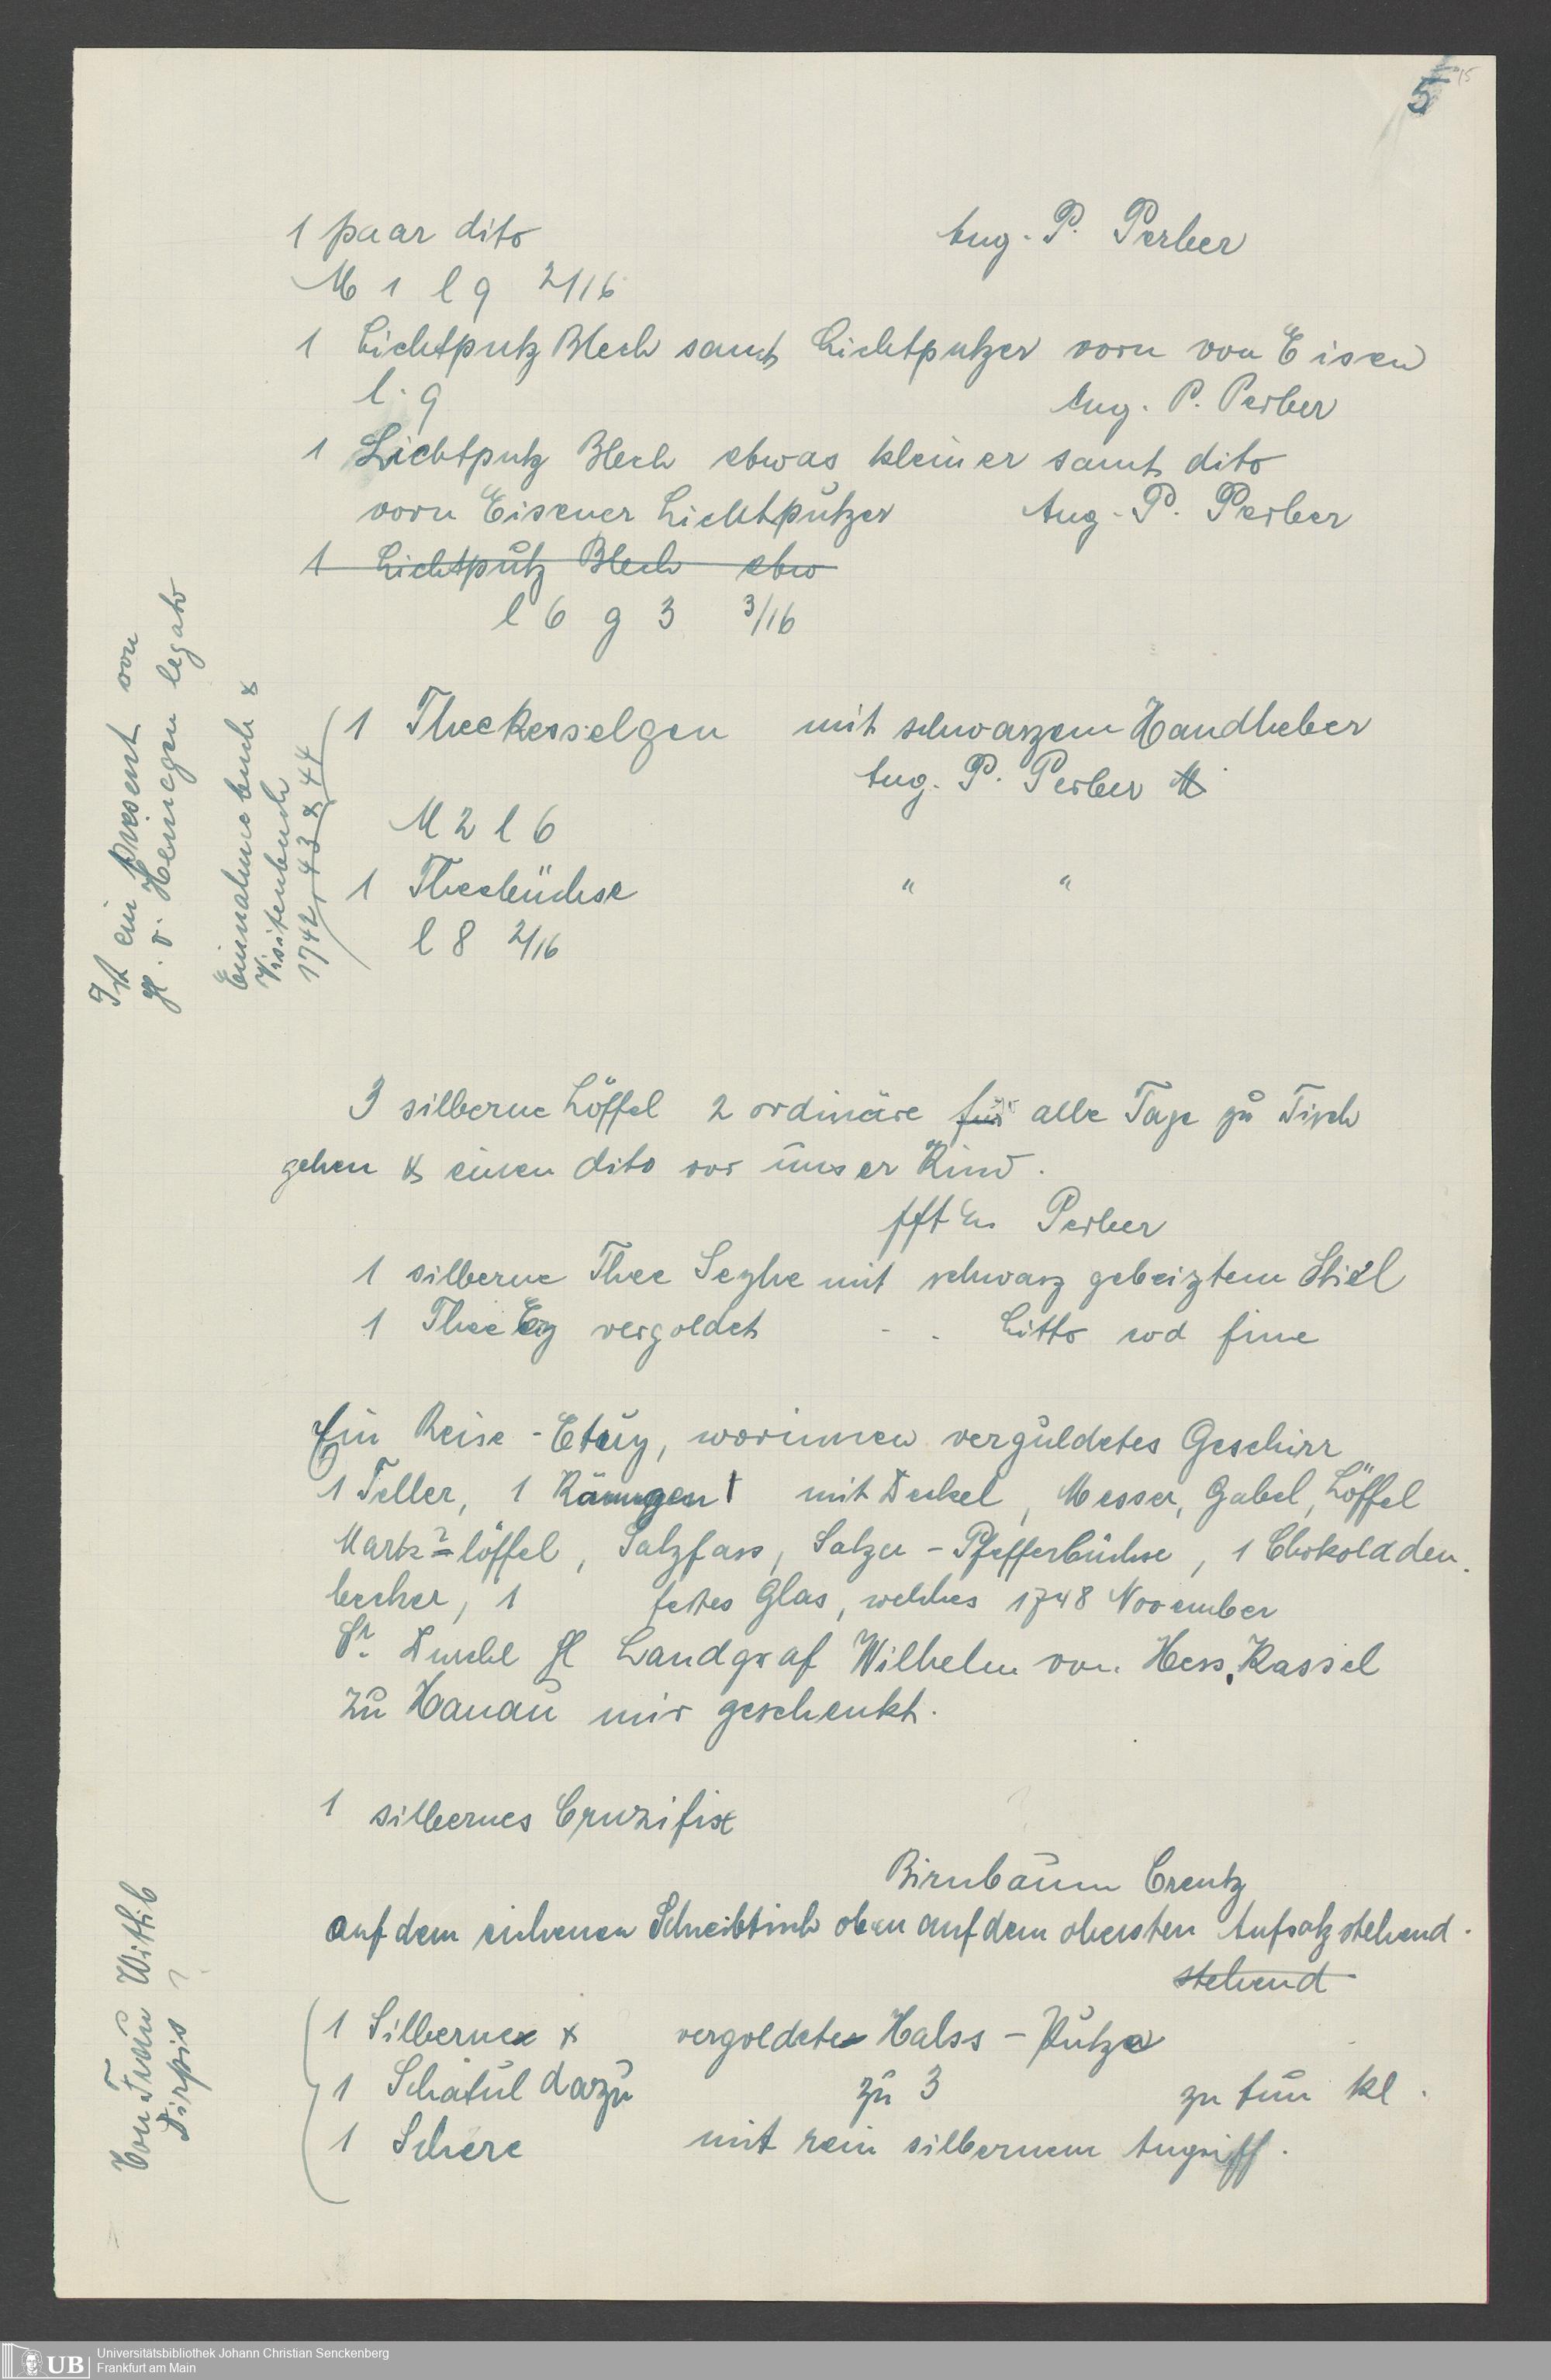 5
15
1 paar dito Aug. P. Perber
M 1 l 9 2/16
1 Lichtputz Blech samt Lichtputzer vorn von Eisen
l. 9 Aug. P. Perber
1 Lichtputz Blech etwas kleiner samt dito
vorn Eisener Lichtputzer Aug. P. Perber
1 Lichtputz Blech etw
l 6 g 3 3/16
1 Theekesselgen mit schwarzem Handheber
Aug. P. Perber
M 2 l 6
1 Theebüchse " "
l 8 2/16
Ist ein present von
H. v. Heinegen legato
Einnahmebuch &
Visitenbuch
1742, 43 & 44
3 silberne Löffel 2 ordinäre für alle Tage zu Tisch
gehen & einen dito vor unser Kind.
fft Perber
1 silberne Thee Seyhe mit schwarz gebeiztem Stiel
1 Thee vergoldet - . Litto fine
Ein Reise-Etuy, worinnen verguldetes Geschirr
1 Teller, 1 Känngen mit Deckel, Messer, Gabel, Löffel
Mark?löffel, Salzfass, Salzu-Pfefferbüchse, 1 Chokoladden
becher, 1 tettes Glas, welches 1748 November
Sr. Durchl H Landgraf Wilhelm von Hess. Kassel
zu Hanau mir geschenkt.
1 silbernes Cruzifix
Birnbaum Creutz
auf dem eichenen Schreibtisch oben auf dem obersten Aufsatz stehend.
stehend
1 Silberne & vergoldete Halss-Putze
1 Schatul dazu zu 3 zu tun kl.
1 Schere mit rein silbernem Angriff.
Von Frau Wittib
Dirpis?
Universitätsbibliothek Johann Christian Senckenberg
Frankfurt am Main
UB